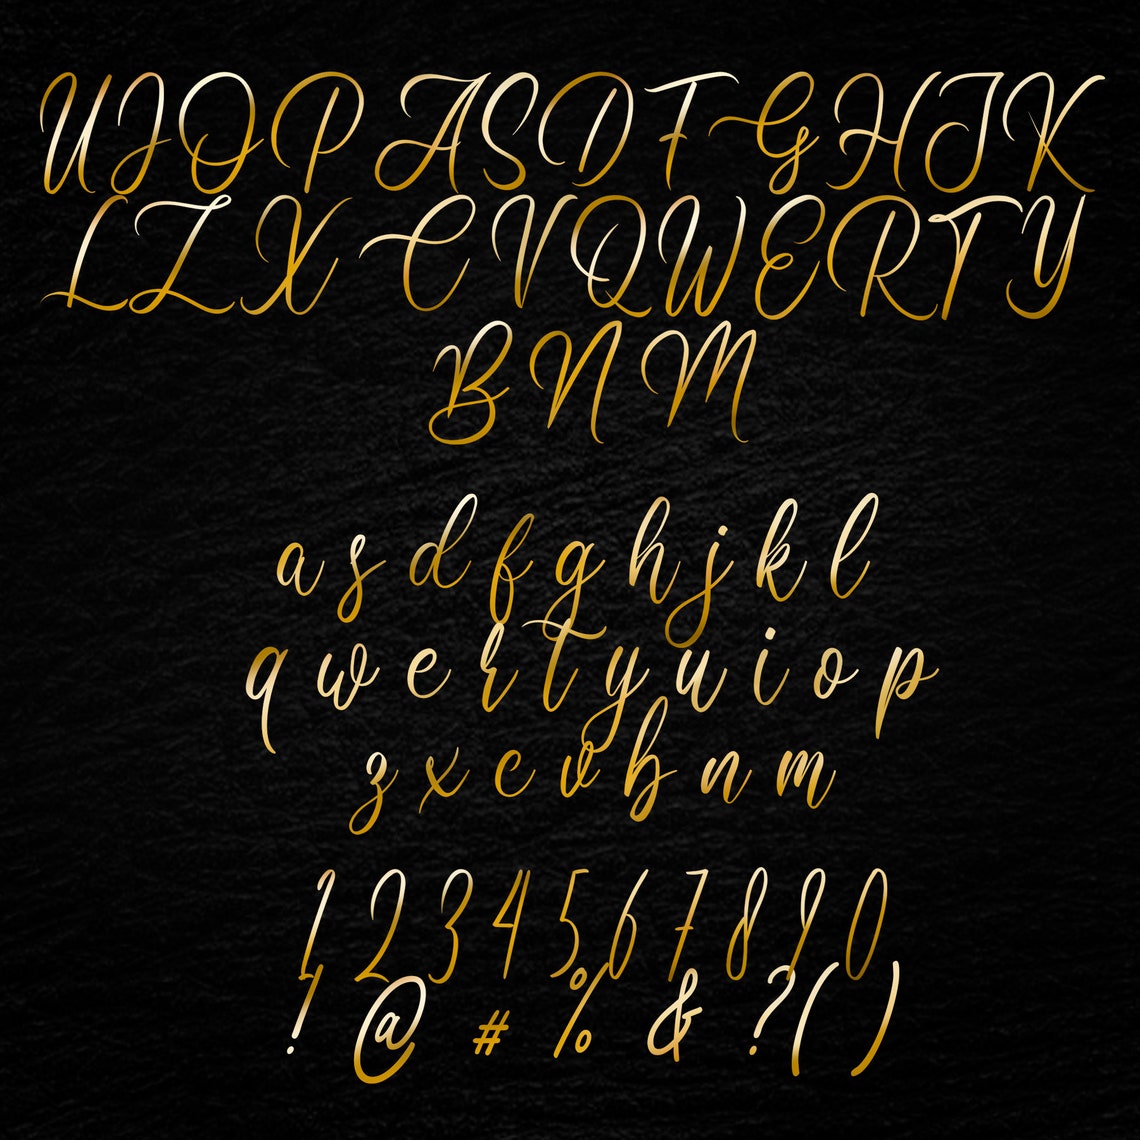 U I O P A S D F G H J K
L Z X C V Q W E R T Y
B N M
a s d f g h j k l
q w e r t y u i o p
z x c v b n m
1 2 3 4 5 6 7 8 9 0
! @ # % & ? ( )